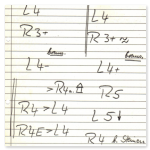 L4
L4
R3+
R3+≈
L4-
L4+
>R4~
R5
R4>L4
L5↓
R4E>L4
R4